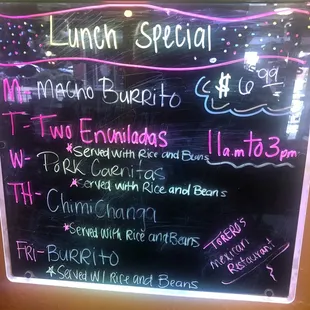 Lunch Special
M- Macho Burrito
$6.99
T- Two Enuniladas
*Served with Rice and Buns
11a.m to 3pm
W- Pork Carnitas
*Served with Rice and Beans
TH- Chimichanga
*Served with Rice and Beans
Torero's
mexican
Restaurant
FRI- Burrito
*Served w/ Rice and Beans